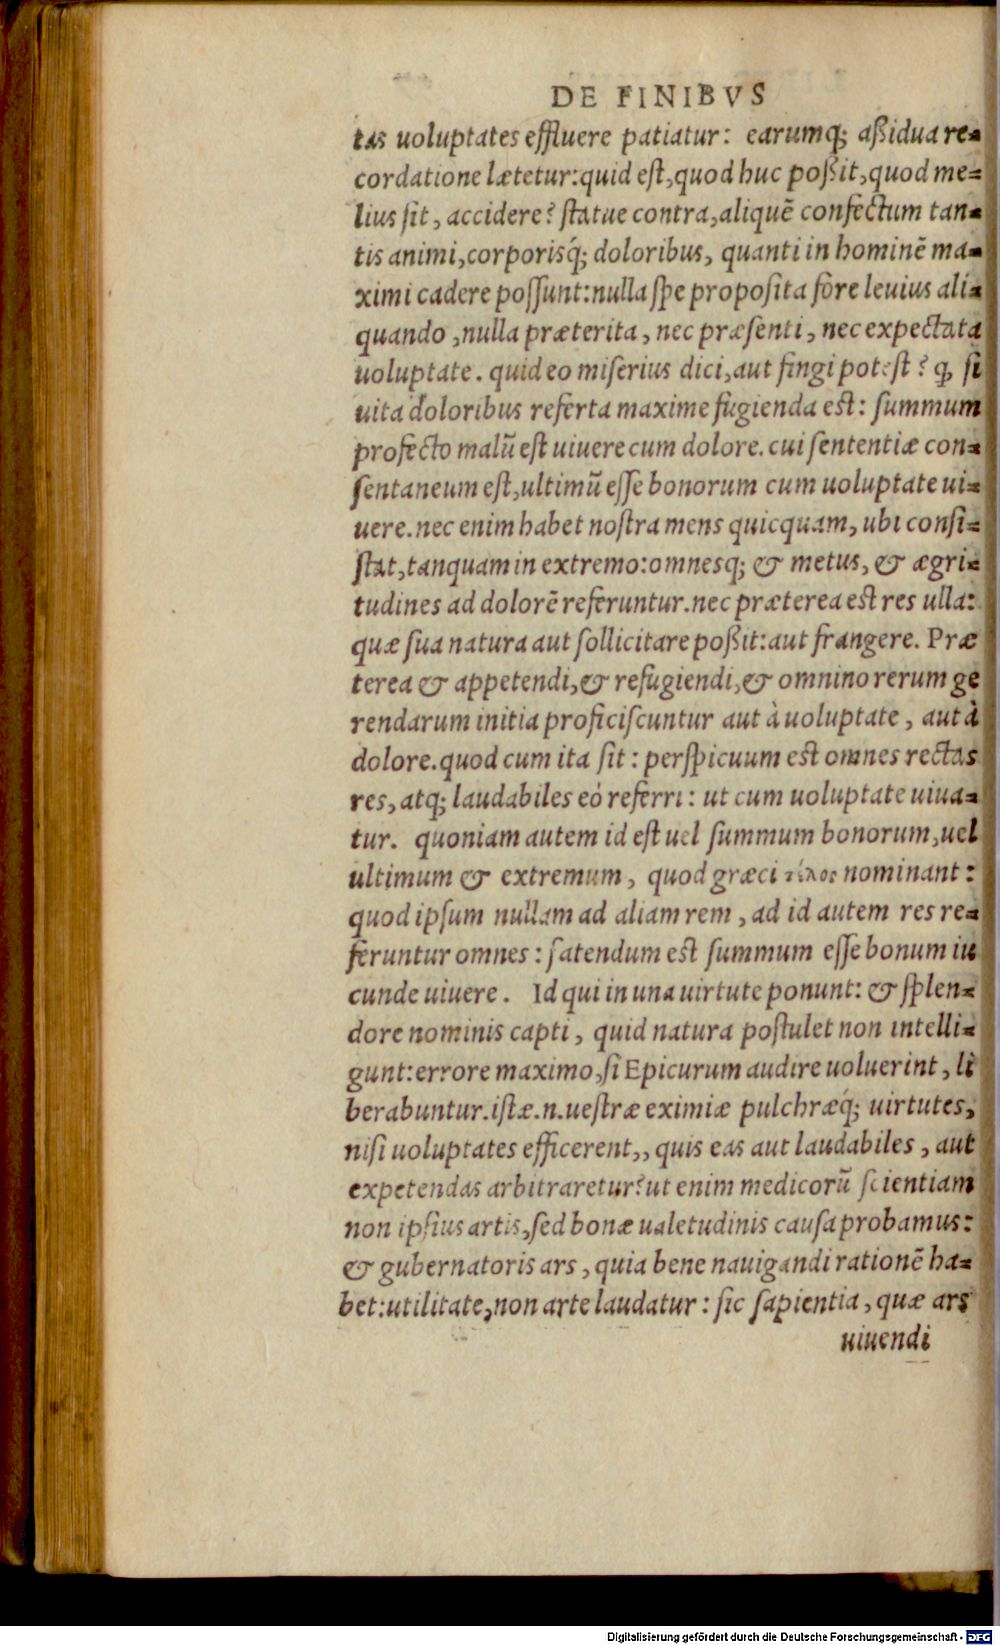 DE FINIBVS
tas uoluptates effluere patiatur: earumq; aßidua re-
cordatione lætetur:quid eſt,quod huc poßit,quod me-
lius ſit, accidere? ſtatue contra,aliquē confectum tan-
tis animi,corporisq́; doloribus, quanti in hominē ma-
ximi cadere poſſunt:nulla ſpe propoſita fore leuius ali-
quando ,nulla præterita, nec præſenti, nec expectata
uoluptate. quid eo miſerius dici,aut fingi poteſt? ꝙ ſi
uita doloribus referta maxime fugienda eſt: ſummum
profecto malū eſt uiuere cum dolore. cui ſententiæ con-
ſentaneum eſt,ultimū eſſe bonorum cum uoluptate ui-
uere.nec enim habet noſtra mens quicquam, ubi conſi-
ſtat,tanquam in extremo:omnesq; & metus, & ægri-
tudines ad dolorē referuntur.nec præterea eſt res ulla:
quæ ſua natura aut ſollicitare poßit:aut frangere. Præ
terea & appetendi,& refugiendi,& omnino rerum ge
rendarum initia proficiſcuntur aut à uoluptate, aut à
dolore.quod cum ita ſit: perſpicuum eſt omnes rectas
res, atq; laudabiles eò referri: ut cum uoluptate uiua-
tur. quoniam autem id eſt uel ſummum bonorum,uel
ultimum & extremum, quod græci τέλος nominant:
quod ipſum nullam ad aliam rem, ad id autem res re-
feruntur omnes: fatendum eſt ſummum eſſe bonum iu
cunde uiuere. Id qui in una uirtute ponunt: & ſplen-
dore nominis capti, quid natura poſtulet non intelli-
gunt:errore maximo,ſi Epicurum audire uoluerint, li
berabuntur.iſtæ.n.ueſtræ eximiæ pulchræq́; uirtutes,
niſi uoluptates efficerent,, quis eas aut laudabiles, aut
expetendas arbitraretur?ut enim medicorū ſcientiam
non ipſius artis,ſed bonæ ualetudinis cauſa probamus:
& gubernatoris ars, quia bene nauigandi rationē ha-
bet:utilitate,non arte laudatur: ſic ſapientia, quæ ars
uiuendi
Digitalisierung gefördert durch die Deutsche Forschungsgemeinschaft - DFG